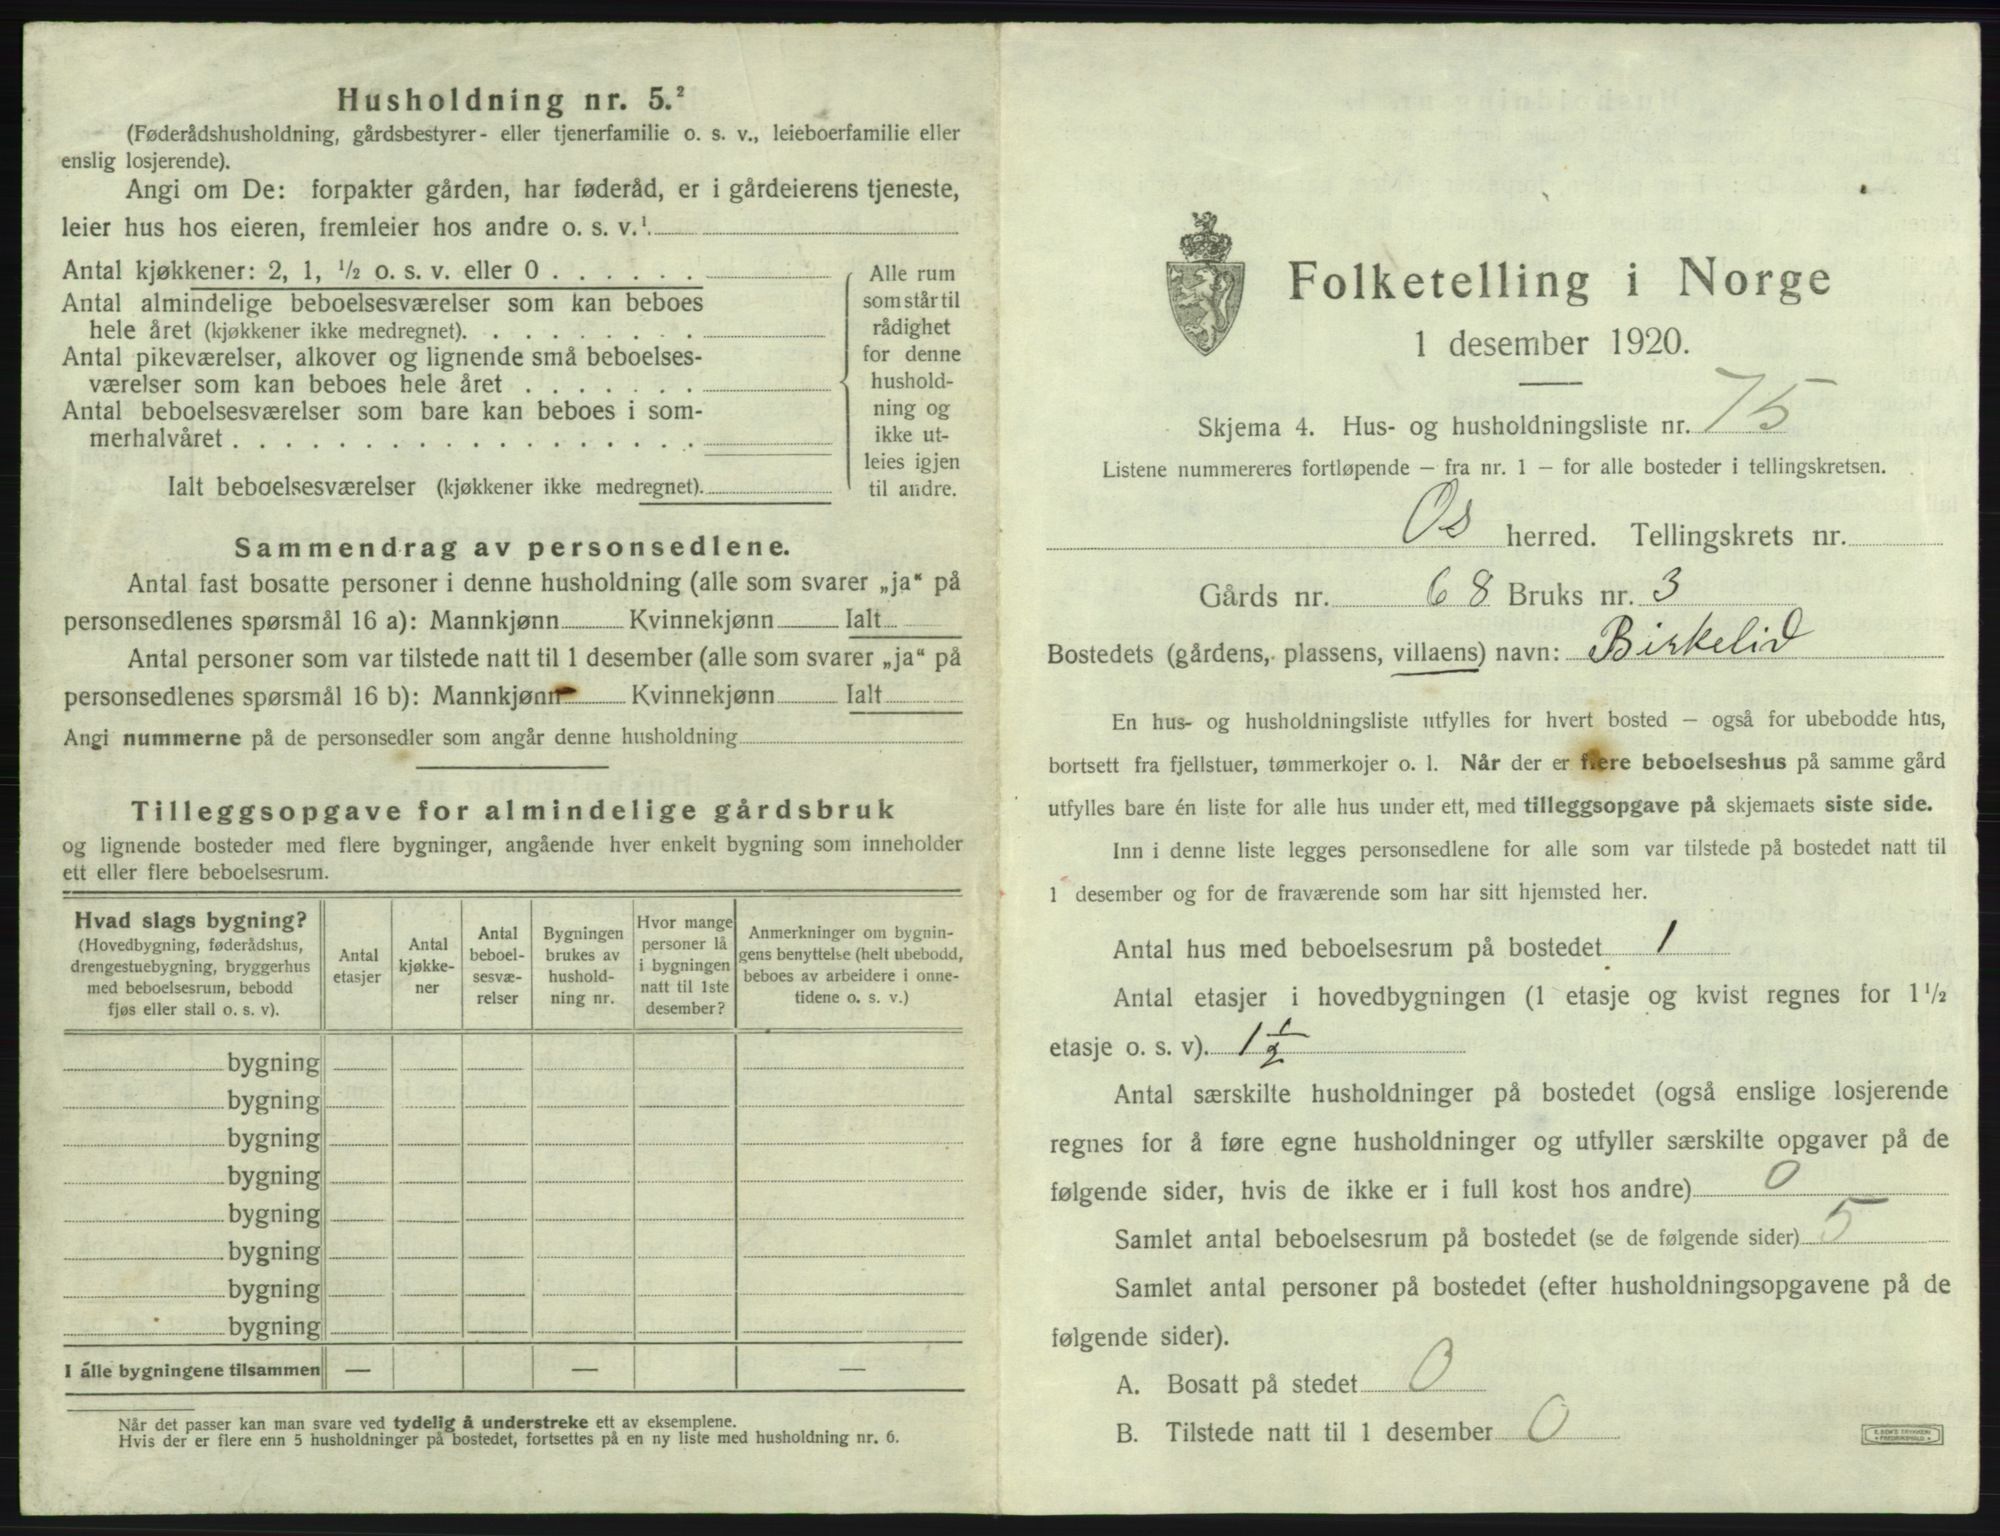 Husholdning nr. 5.²
(Føderådshusholdning, gårdsbestyrer- eller tjenerfamilie o. s. v., leieboerfamilie eller
enslig losjerende).
Angi om De: forpakter gården, har føderåd, er i gårdeierens tjeneste,
leier hus hos eieren, fremleier hos andre o. s. v.¹
Antal kjøkkener: 2, 1, ½ o. s. v. eller 0 . . . . . .
Antal almindelige beboelsesværelser som kan beboes
hele året (kjøkkener ikke medregnet). . . . . . . . .
Antal pikeværelser, alkover og lignende små beboelses-
værelser som kan beboes hele året . . . . . . .
Antal beboelsesværelser som bare kan beboes i som-
merhalvåret . . . . . . . . . . . . . . . . . .
Ialt beboelsesværelser (kjøkkener ikke medregnet).
Alle rum
som står til
rådighet
for denne
hushold-
ning og
ikke ut-
leies igjen
til andre.
Sammendrag av personsedlene.
Antal fast bosatte personer i denne husholdning (alle som svarer „ja“ på
personsedlenes spørsmål 16 a): Mannkjønn Kvinnekjønn Ialt
Antal personer som var tilstede natt til 1 desember (alle som svarer „ja“ på
personsedlenes spørsmål 16 b): Mannkjønn Kvinnekjønn Ialt
Angi nummerne på de personsedler som angår denne husholdning
Tilleggsopgave for almindelige gårdsbruk
og lignende bosteder med flere bygninger, angående hver enkelt bygning som inneholder
ett eller flere beboelsesrum.
Hvad slags bygning?
(Hovedbygning, føderådshus,
drengestuebygning, bryggerhus
med beboelsesrum, bebodd
fjøs eller stall o. s. v).
Antal
etasjer
Antal
kjøkke-
ner
Antal
beboel-
sesvæ-
relser
Bygningen
brukes av
hushold-
ning nr.
Hvor mange
personer lå
i bygningen
natt til 1ste
desember?
Anmerkninger om bygnin-
gens benyttelse (helt ubebodd,
beboes av arbeidere i onne-
tidene o. s. v.)
bygning
bygning
bygning
bygning
bygning
bygning
bygning
bygning
I alle bygningene tilsammen — — —
Når det passer kan man svare ved tydelig å understreke ett av eksemplene.
Hvis der er flere enn 5 husholdninger på bostedet, fortsettes på en ny liste med husholdning nr. 6.
Folketelling i Norge
1 desember 1920.
Skjema 4. Hus- og husholdningsliste nr. 75
Listene nummereres fortløpende – fra nr. 1 – for alle bosteder i tellingskretsen.
Os herred. Tellingskrets nr.
Gårds nr. 68 Bruks nr. 3
Bostedets (gårdens, plassens, villaens) navn: Birkelid
En hus- og husholdningsliste utfylles for hvert bosted – også for ubebodde hus,
bortsett fra fjellstuer, tømmerkojer o. l. Når der er flere beboelseshus på samme gård
utfylles bare én liste for alle hus under ett, med tilleggsopgave på skjemaets siste side.
Inn i denne liste legges personsedlene for alle som var tilstede på bostedet natt til
1 desember og for de fraværende som har sitt hjemsted her.
Antal hus med beboelsesrum på bostedet 1
Antal etasjer i hovedbygningen (1 etasje og kvist regnes for 1½
etasje o. s. v). 1½
Antal særskilte husholdninger på bostedet (også enslige losjerende
regnes for å føre egne husholdninger og utfyller særskilte opgaver på de
følgende sider, hvis de ikke er i full kost hos andre) 0
Samlet antal beboelsesrum på bostedet (se de følgende sider) 5
Samlet antal personer på bostedet (efter husholdningsopgavene på de
følgende sider).
A. Bosatt på stedet 0
B. Tilstede natt til 1 desember 0